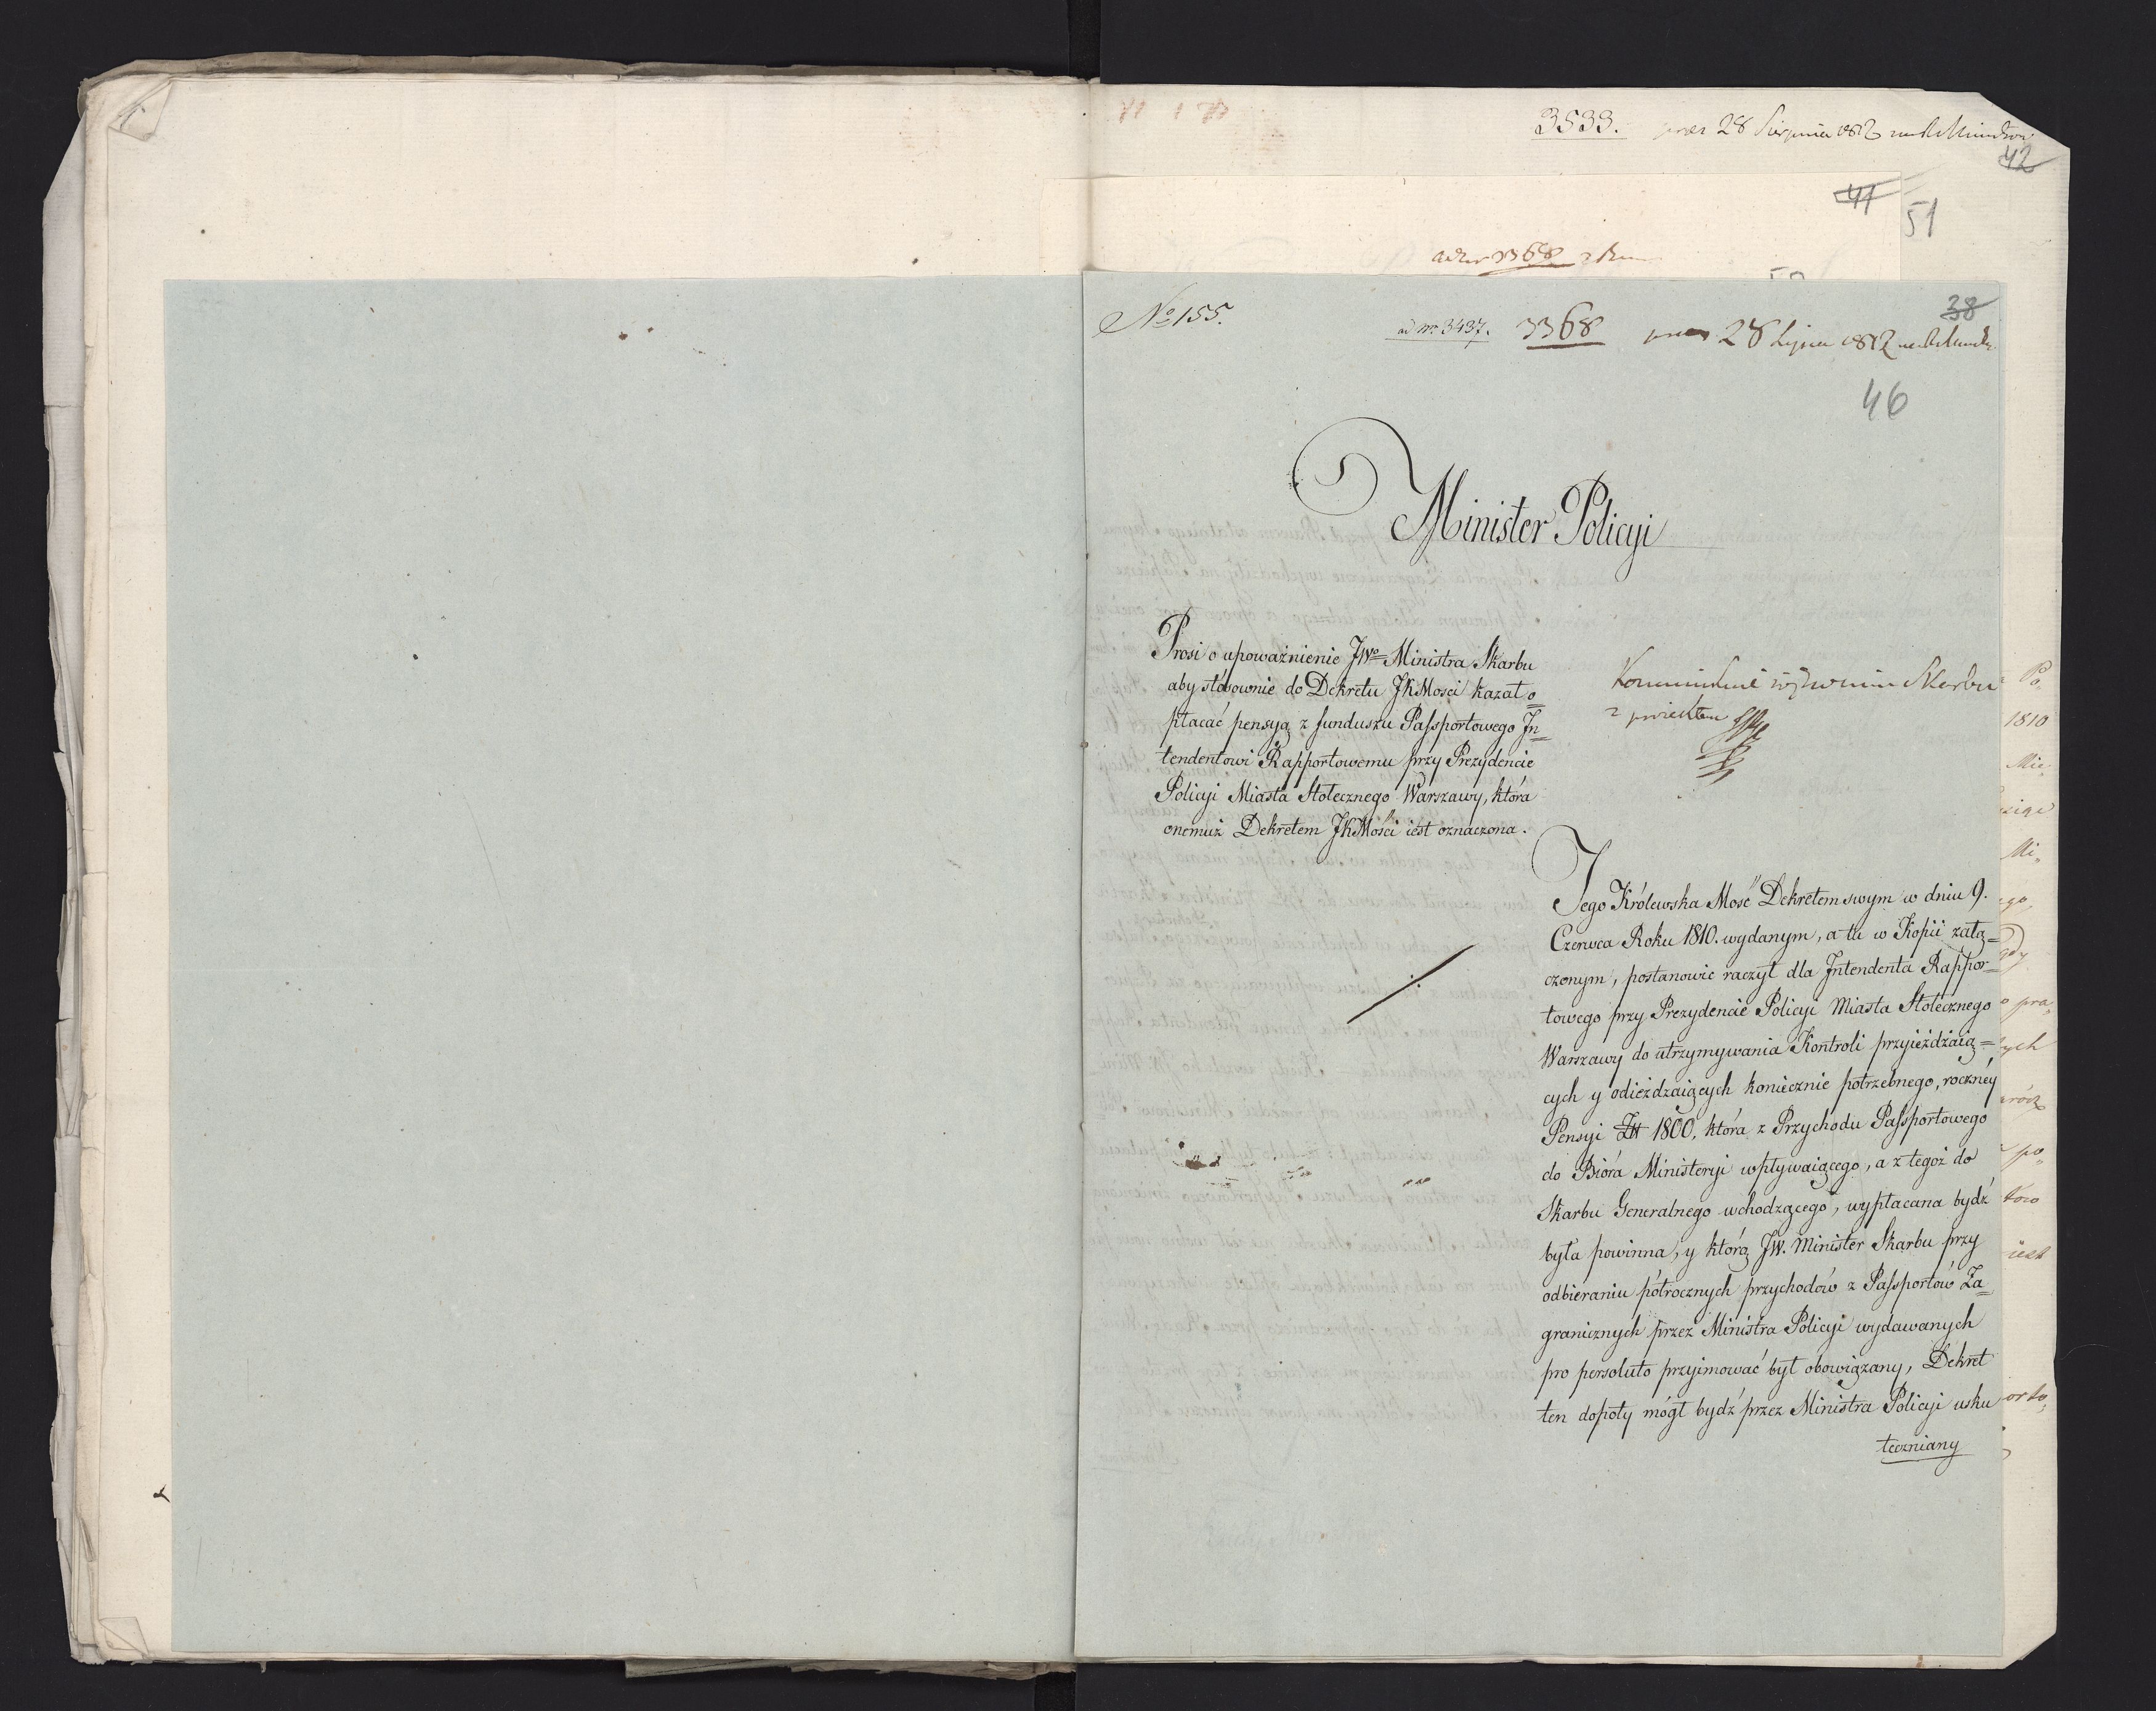 3533. 28 Sierpnia 1812
42
41
51
3368
No 155.
ad nr. 3437. 3368 28 Lipca 1812
38
46
Minister Policyi
Prosi o upoważnienie JWo Ministra Skarbu
aby stósownie do Dekretu JKMosci kazał o=
płacać pensyą z funduszu Passportowego In=
tendentowi Rapportowemu przy Prezydencie
Policyi Miasta Stołecznego Warszawy, która
onemuż Dekretem JKMości iest oznaczona.
Skarbu
z
Jego Królewska Mość Dekretem swym w dniu 9.
Czerwca Roku 1810. wydanym, a tu w Kopii załą=
czonym, postanowić raczył dla Intendenta Rappor=
towego przy Prezydencie Policyi Miasta Stołecznego
Warszawy do utrzymywania Kontroli przyieżdżaią=
cych y odieżdzaiących koniecznie potrzebnego, rocznéy
Pensyi Zł 1800, która z Przychodu Passportowego
do Bióra Ministeryi wpływaiącego, a z tegoż do
Skarbu Generalnego wchodzącego, wypłacana bydź
była powinna, y którą JW. Minister Skarbu przy
odbieraniu półrocznych przychodów z Passportów Za=
granicznych przez Ministra Policyi wydawanych
pro persoluto przyimować był obowiązany, Dekret
ten dopoty mógł bydź przez Ministra Policyi usku
teczniany
1810